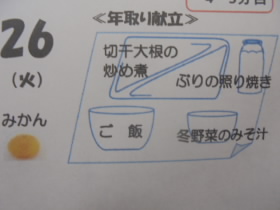 ≪年取り献立≫
26
(火)
みかん
切干大根の
炒め煮
ぶりの照り焼き
ご飯
冬野菜のみそ汁